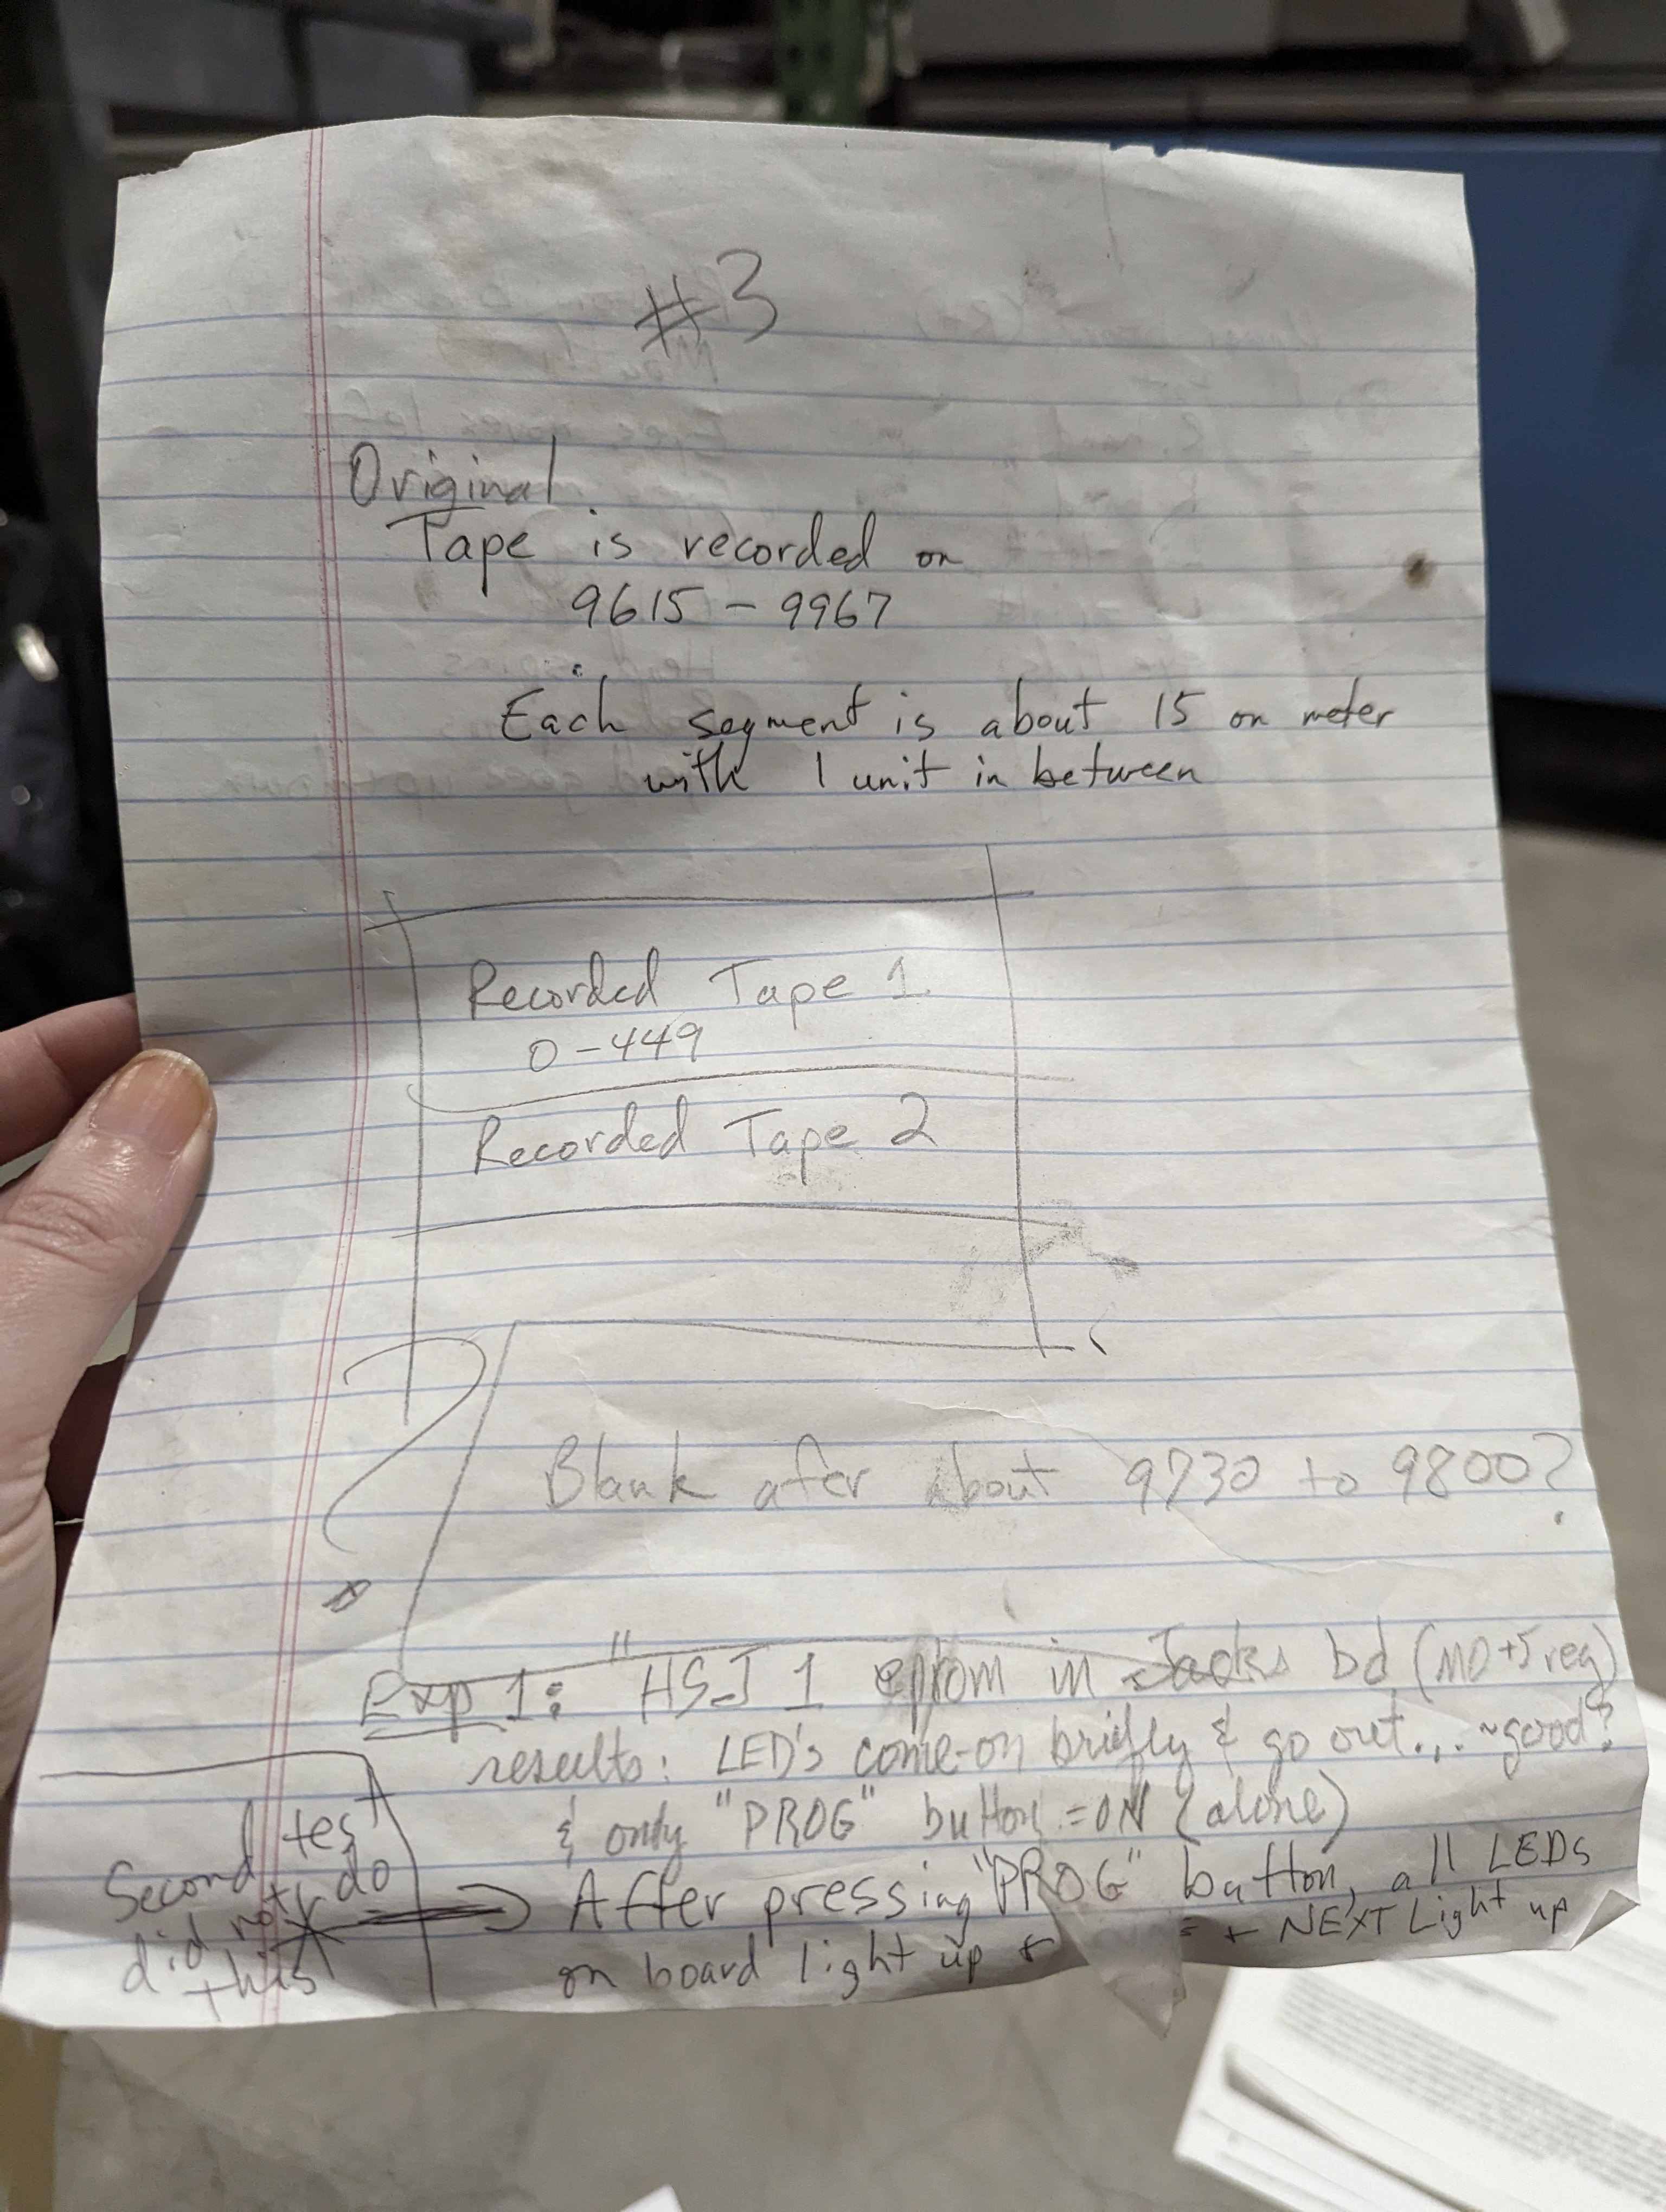 #3
Original
Tape is recorded on
9615 - 9967
Each segment is about 15 on meter
with 1 unit in between
Recorded Tape 1
0-449
Recorded Tape 2
?
Blank afer about 9730 to 9800?
Exp 1: "HSJ 1 eprom in Jacks bd (no +5 reg)
results: LED's come-on briefly & go out... ~good?
& only "PROG" button = ON (alone)
Second test
did not do
this
After pressing "PROG" button, all LEDs
on board light up + + NEXT Light up